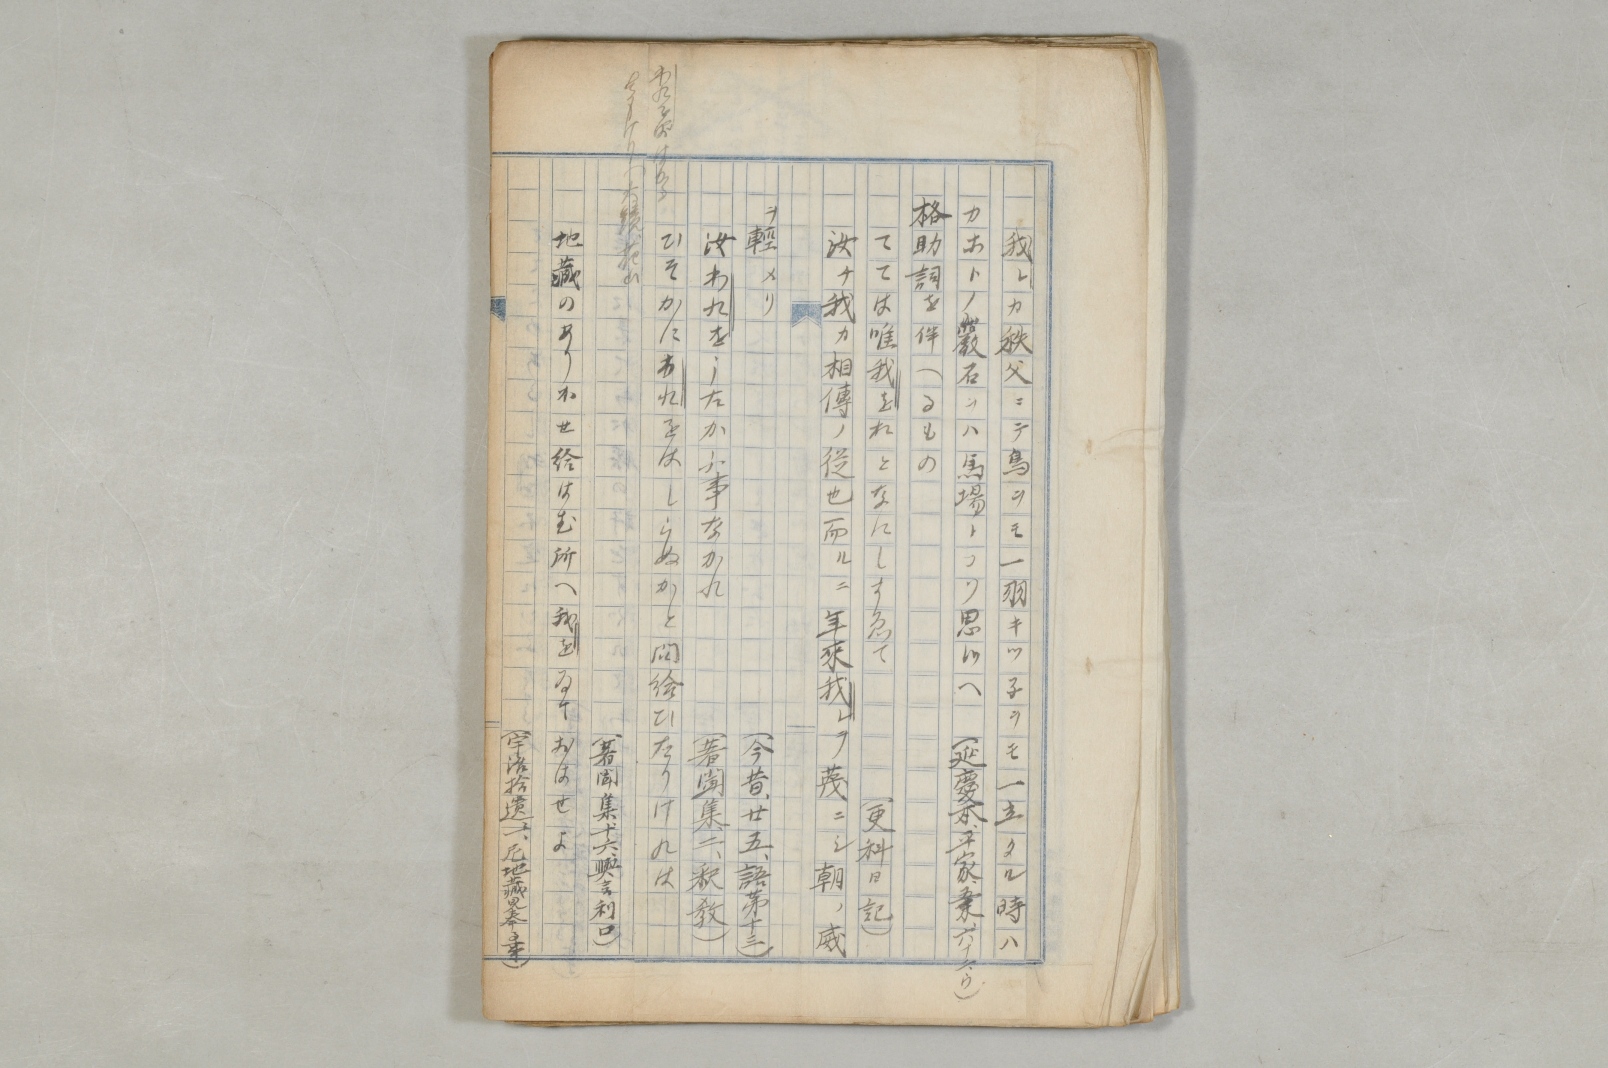 我レカ秩父ニテ鳥ヲモ一羽キツ子ヲモ一立タル時ハ
カホトノ巖石ヲハ馬場トコソ思候へ
(延慶本、平家、五末、六十六ウ)
格助詞を伴へるもの
ては唯我をれとなにしすゑて
(更科日記)
汝ヂ我カ相傳ノ従也而ルニ年來我レヲ蔑ニシ朝ノ威
ヲ輕メリ
(今昔、廿五、語第十三)
汝われをうたかふ事なかれ
(著聞集、二、釈教)
ひそかにわれをはしらぬかと問給ひたりけれは
(著聞集十六、興言利口)
地藏のありかせ給はむ所へ我をゐておはせよ
(宇治拾遺一、尼地藏見奉事)